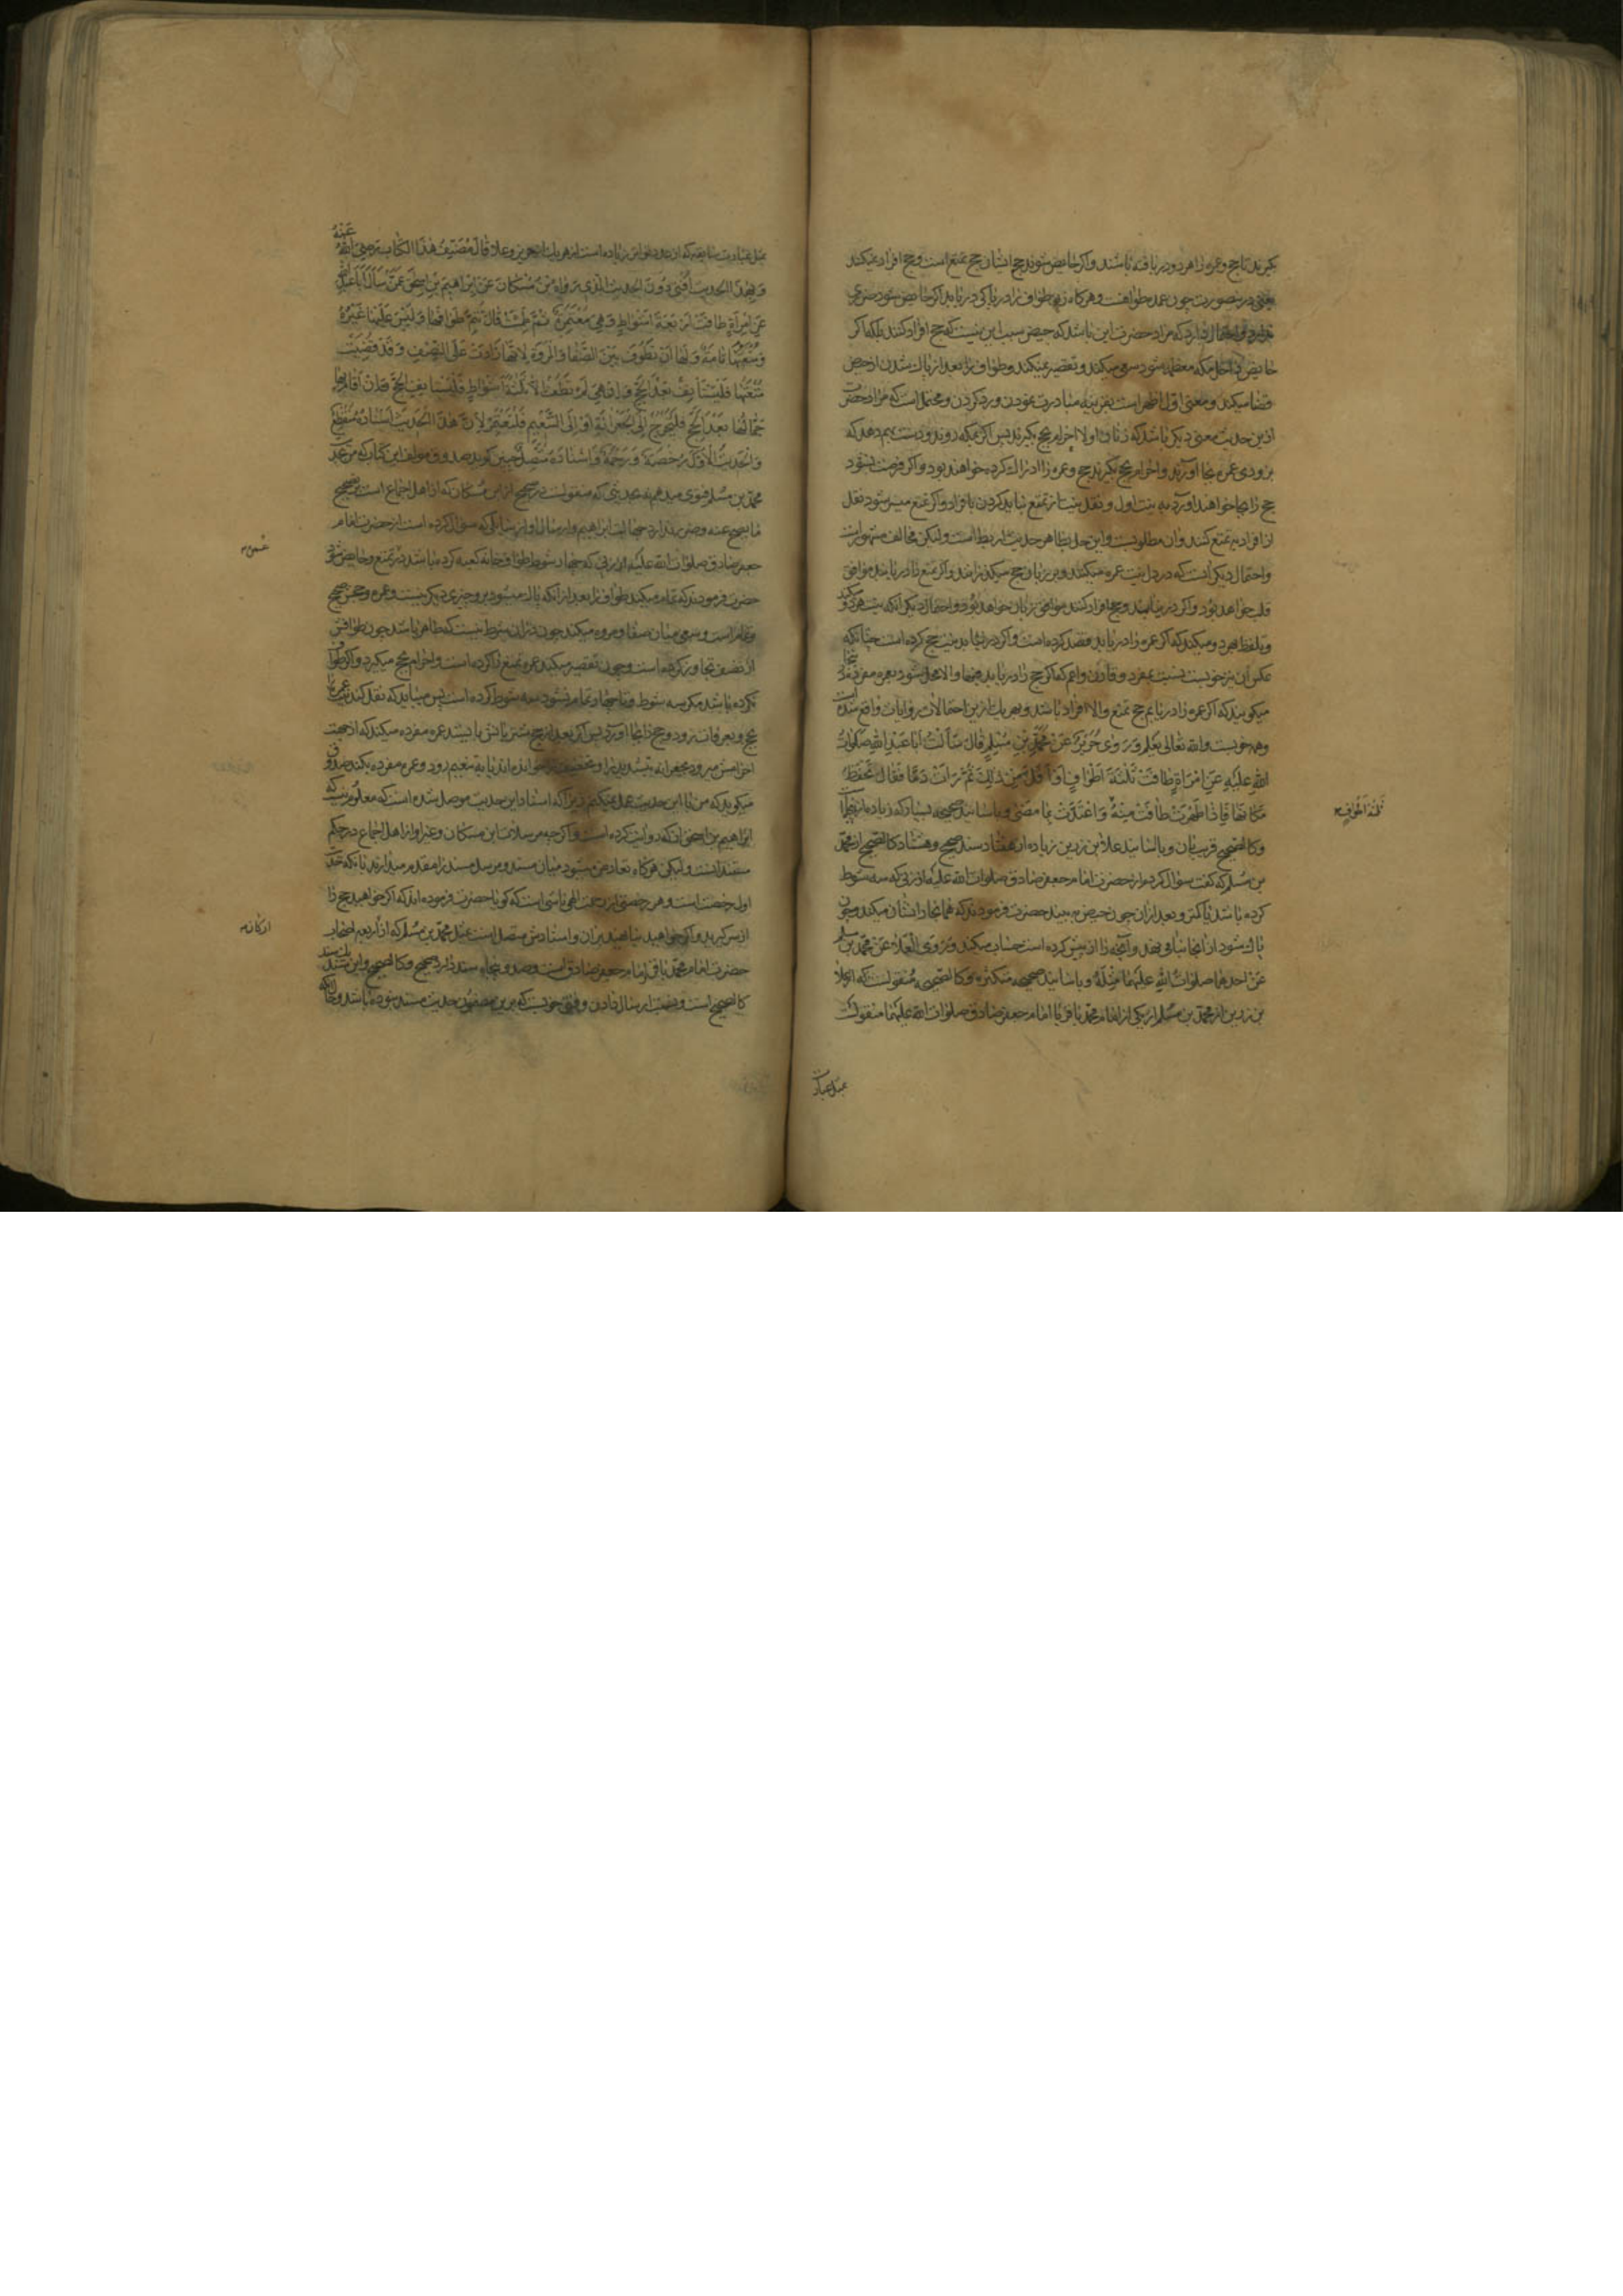 بگیرند تا حج و عمره را هر دو دریافته باشند و اگر حایض شوند حج ایشان حج تمتع است و حج افراد نمیکنند
یعنی درین صورت چون عمده طوافست و هرگاه طواف را در پاکی دریابد اگر حایض شود ضرری
ندارد و احتمال دارد که مراد حضرت این باشد که حیض سبب این نیست که حج افراد کنند بلکه اگر
حایض داخل مکه معظمه شود سعی میکند و تقصیر میکند و طواف را بعد از پاک شدن از حیض
قضا میکند و معنی اول اظهر است بقرینه مبادرت نمودن و رد کردن و محتمل است که مراد حضرت
ازین حدیث معنی دیگر باشد که زنان اولا احرام بحج بگیرند پس اگر بمکه روند و دست بهم دهد که
بزودی عمره بجا آورند و احرام بحج بگیرند حج و عمره را ادراک کرده خواهند بود و اگر فرصت نشود
حج را بجا خواهند آورد به نیت اول و نقل نیت از تمتع نباید کردن بافراد و اگر تمتع میسر شود نقل
از افراد به تمتع کنند و آن مطلوبست و این حمل بظاهر حدیث اربط است و لیکن مخالف مشهور است
و احتمال دیگر آنست که در دل نیت عمره میکنند و بر زبان حج میگذرانند و اگر تمتع را دریابند موافق
قلب خواهد بود و اگر درنیابند و حج افراد کنند موافق زبان خواهد بود و احتمال دیگر آنکه نیت هر دو میکند
و تلفظ بهر دو میکند که اگر عمره را دریابد قصد کرده است و اگر درنیابد نیت حج کرده است چنانکه
عکس آن نیز خوبست نسبت بمفرد و قارن
میگویند که اگر عمره را دریابم حج تمتع والا افراد باشد و بهر یک ازین احتمالات روایات واقع شده است
و همه خوبست والله تعالی یعلم وَرَوَی حَرِیزٌ عَنْ مُحَمَّدِ بْنِ مُسْلِمٍ قَالَ سَأَلْتُ أَبَا عَبْدِ اللهِ صَلَوَاتُ
اللهِ عَلَیْهِ عَنِ امْرَأَةٍ طَافَتْ ثَلٰثَةَ أَطْوَافٍ أَوْ أَقَلَّ مِنْ ذٰلِکَ ثُمَّ رَأَتْ دَمًا فَقَالَ تَحْفَظُ
مَکَانَهَا فَإِذَا طَهُرَتْ طَافَتْ مِنْهُ وَاعْتَدَّتْ بِمَا مَضَی و باسانید صحیحه بسیار که زیاده از پنجاه
و کالصحیح قریب بآن و باسانید علاء بن رزین زیاده از هفتاد سند صحیح و هشتاد کالصحیح از محمد
بن مسلم که گفت سؤال کردم از حضرت امام جعفر صادق صلوات الله علیه از زنی که سه شوط
کرده باشد یا کمتر و بعد از آن خون حیض به بیند حضرت فرمودند که همانجا را نشان میکند و چون
پاک شود از آنجا بنا می نهد و آنچه را از پیش کرده است حساب میکند وَرَوَی الْعَلَاءُ عَنْ مُحَمَّدِ بْنِ مُسْلِمٍ
عَنْ أَحَدِهِمَا صلوات الله علیهما مِثْلَهُ و باسانید صحیحه متکثره و کالصحیحه منقولست که از علاء
بن رزین از محمد بن مسلم از یکی از امام محمد باقر یا امام جعفر صادق صلوات الله علیهما منقولست
ثلثة اطواف
بمثل عبارت
بمثل عبارت سابقه که زیاده است از هر یک از حریز و علا قَالَ مُصَنِّفُ هٰذَا الْکِتَابِ رَضِیَ اللهُ عَنْهُ
وَبِهٰذَا الْحَدِیثِ أُفْتِی دُونَ الْحَدِیثِ الَّذِی رَوَاهُ ابْنُ مُسْکَانَ عَنْ إِبْرَاهِیمَ بْنِ إِسْحٰقَ عَمَّنْ سَأَلَ أَبَا عَبْدِ اللهِ
عَنِ امْرَأَةٍ طَافَتْ أَرْبَعَةَ أَشْوَاطٍ وَهِیَ مُعْتَمِرَةٌ ثُمَّ طَمِثَتْ قَالَ تُتِمُّ طَوَافَهَا وَلَیْسَ عَلَیْهَا غَیْرُهُ
وَمُتْعَتُهَا تَامَّةٌ وَلَهَا أَنْ تَطُوفَ بَیْنَ الصَّفَا وَالْمَرْوَةِ لِأَنَّهَا زَادَتْ عَلَی النِّصْفِ وَقَدْ قَضَیَتْ
مُتْعَتَهَا فَلْتَسْتَأْنِفْ بَعْدُ الْحَجَّ وَإِنْ هِیَ لَمْ تَطُفْ إِلَّا ثَلٰثَةَ أَشْوَاطٍ فَلْتَسْتَأْنِفِ الْحَجَّ فَإِنْ أَقَامَ بِهَا
جَمَّالُهَا بَعْدَ الْحَجِّ فَلْتَخْرُجْ إِلَی الْجِعْرَانَةِ أَوْ إِلَی التَّنْعِیمِ فَلْتَعْتَمِرْ لِأَنَّ هٰذَا الْحَدِیثَ إِسْنَادُهُ مُنْقَطِعٌ
وَالْحَدِیثُ الْأَوَّلُ رُخْصَةٌ وَرَحْمَةٌ وَإِسْنَادُهُ مُتَّصِلٌ چنین گوید صدوق مؤلف این کتاب که من بحدیث
محمد بن مسلم فتوی میدهم نه بحدیثی که منقولست در صحیح از ابن مسکان که از اهل اجماع است بر تصحیح
ما یصح عنه و ضرر ندارد جهالت ابراهیم و ارسال او از سایلی که سؤال کرده است از حضرت امام
جعفر صادق صلوات الله علیه از زنی که چهار شوط طواف خانه کعبه کرده باشد در تمتع و حایض شود
حضرت فرمودند که تمام میکند طواف را بعد از آنکه پاک میشود و برو چیزی دیگر نیست و عمره و حجش صحیح
و تمام است و سعی میان صفا و مروه میکند چون در آن شرط نیست که طاهر باشد چون طوافش
از نصف تجاوز کرده است و چون تقصیر میکند عمره تمتع را کرده است و احرام بحج میگیرد و اگر طواف
نکرده باشد مگر سه شوط
بحج و بعرفات رود و حج را بجا آورد پس اگر بعد از حج شتربانش بایستد عمره مفرده میکند که از جهت
احرامش میرود بجعرانه بتشدید را و تخفیف یا به تنعیم رود و عمره مفرده بکند صدوق
میگوید که من باین حدیث عمل نمیکنم زیرا که اسناد این حدیث موصل نشده است که معلوم نیست که
ابراهیم بن اسحق از که روایت کرده است و اگرچه مرسلات ابن مسکان و غیر او از اهل اجماع در حکم
مسند است و لیکن هرگاه تعارض میشود میان مسند و مرسل مسند را مقدم میدارند با آنکه حدیث
اول رخصت است و هر رخصتی از رحمت الهی ناشی است که گویا حضرت فرموده اند که اگر خواهید حج را
از سر گیرید و اگر خواهید بنا نهید بر آن و اسنادش متصل است بمثل محمد بن مسلم که از اربعه اصحاب
حضرت امام محمد باقر و امام جعفر صادق است و صد و پنجاه سند دارد صحیح و کالصحیح و این یک سند
کالصحیح است
عمره
ارکانه